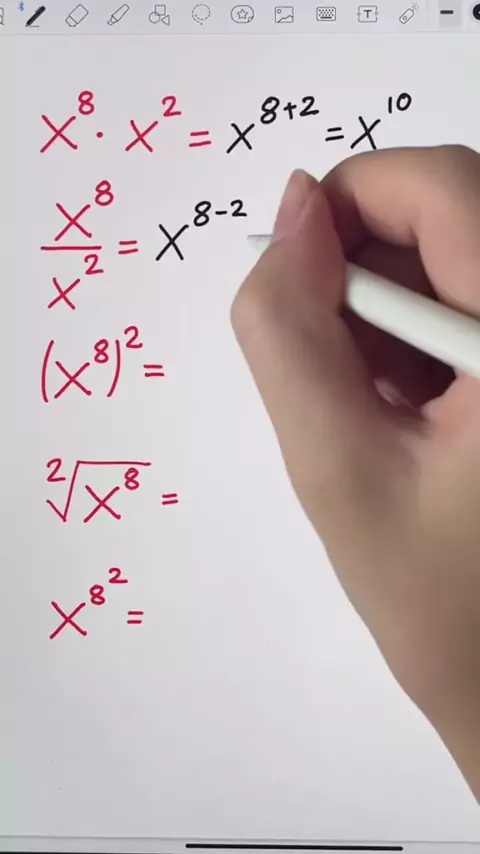 x⁸ · x² = x⁸⁺² = x¹⁰
x⁸/x² = x⁸⁻²
(x⁸)² =
²√x⁸ =
x^8^2 =